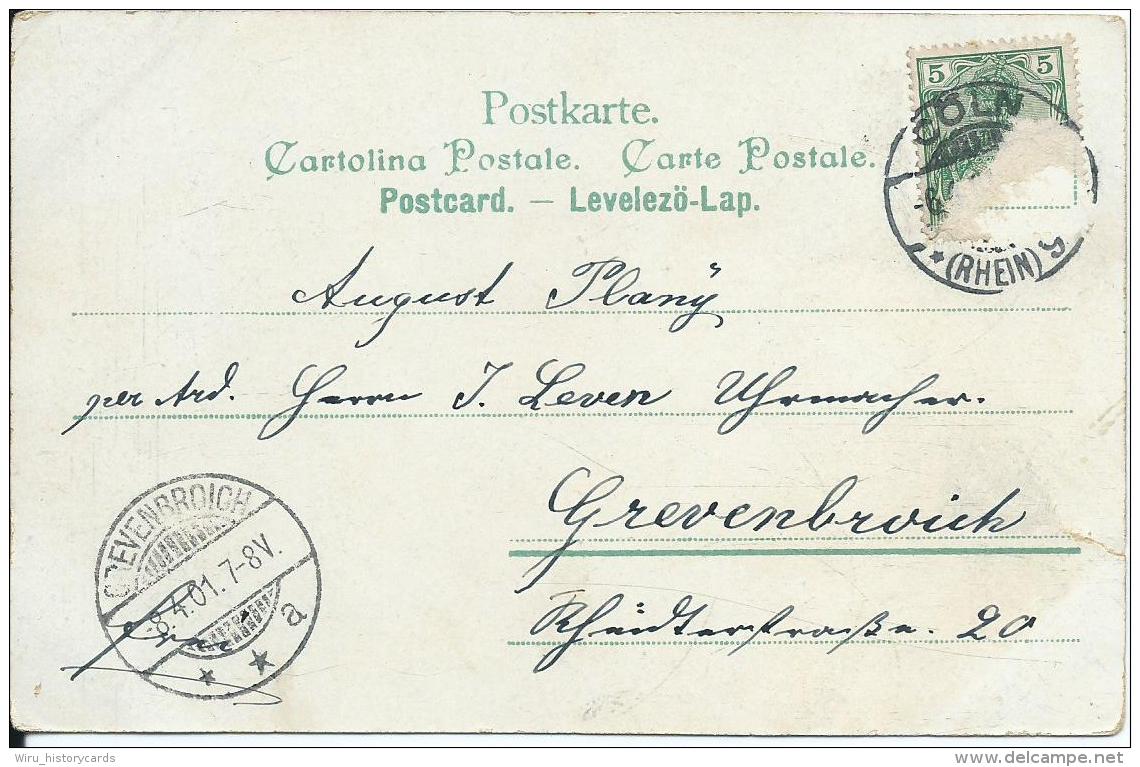 Postkarte.
Cartolina Postale. Carte Postale.
Postcard. — Levelezö-Lap.
5 5
CÖLN
* (RHEIN) 9
August Planÿ
per Ard. Herrn J. Leven Uhrmacher.
Grevenbroich
Rheidterstraße. 20
GREVENBROICH
8.4.01.7-8V.
* * a
Wiru_historycards
www.delcampe.net